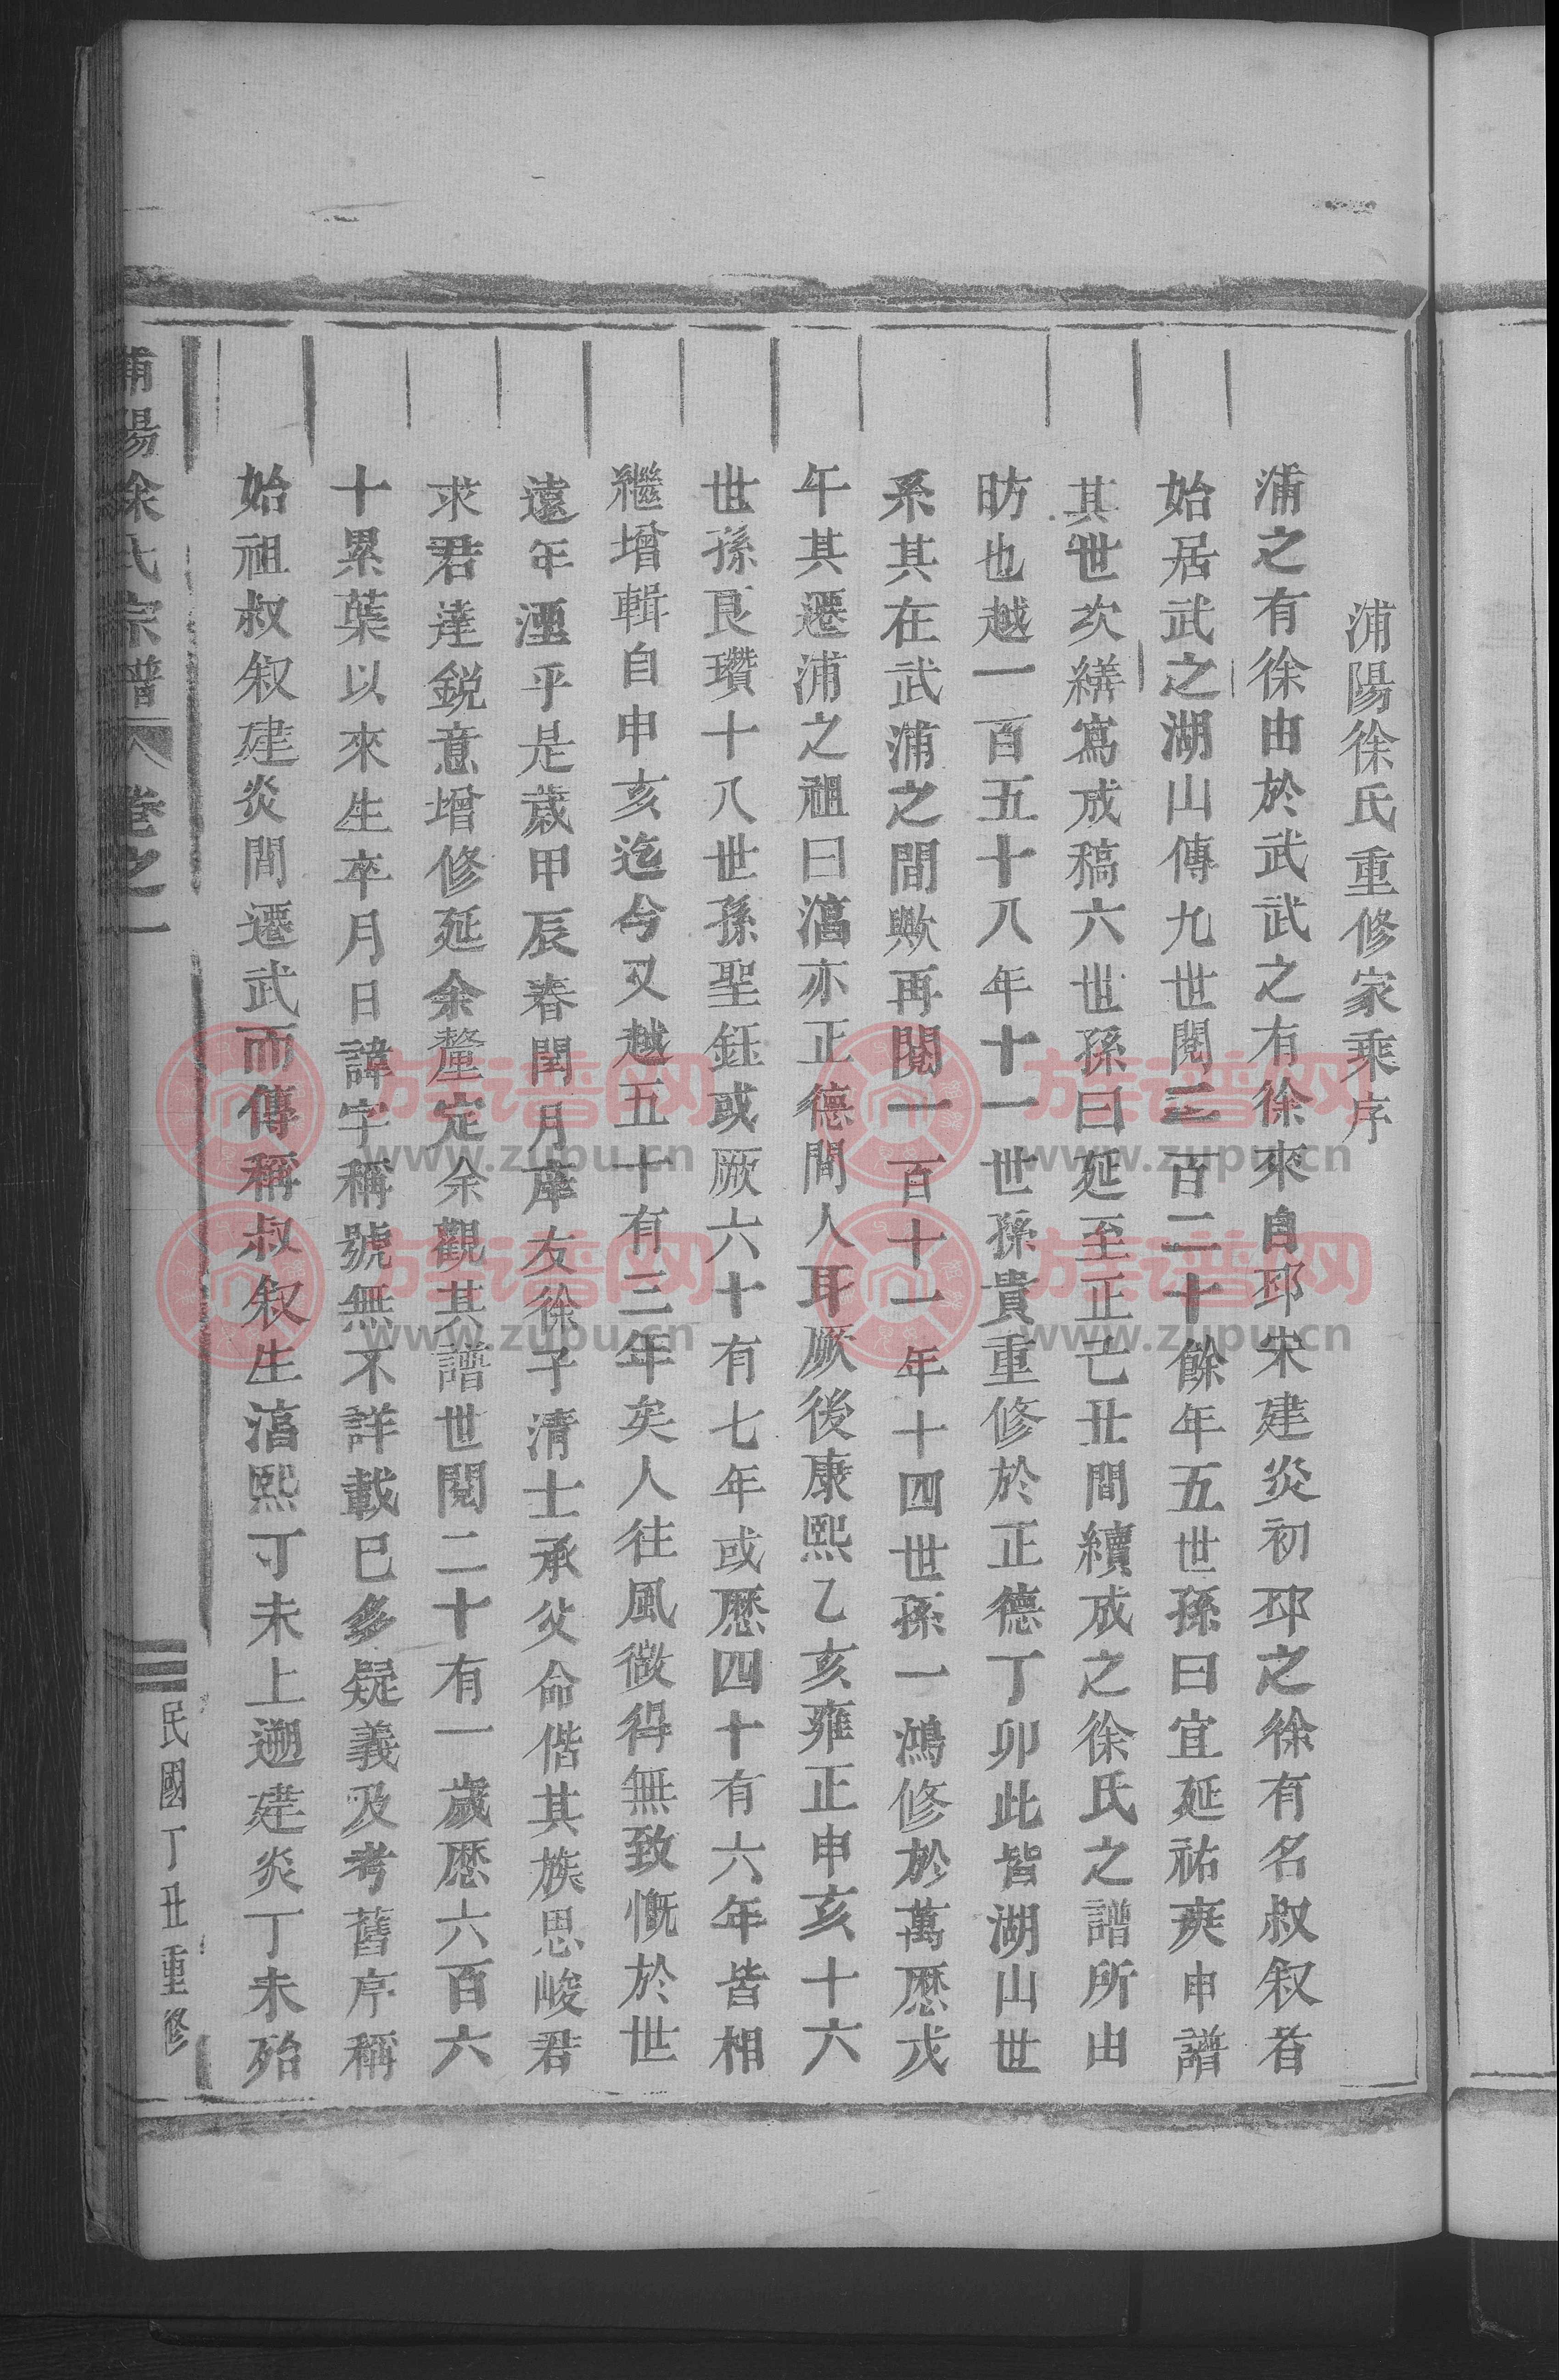 浦陽徐氏重修家乘序
浦之有徐由於武武之有徐來自邳宋建炎初邳之徐有名叔叙者
始居武之湖山傳九世閱二百二十餘年五世孫曰宜延祐庚申譜
其世次繕寫成稿六世孫曰延至正己丑間續成之徐氏之譜所由
昉也越一百五十八年十一世孫貴重修於正德丁卯此皆湖山世
系其在武浦之間歟再閱一百十一年十四世孫一鴻修於萬歷戊
午其遷浦之祖曰濇亦正德間人耳厥後康熙乙亥雍正申亥十六
世孫良瓚十八世孫聖鈺或厥六十有七年或歷四十有六年皆相
繼增輯自申亥迄今又越五十有三年矣人往風微得無致慨於世
遠年湮乎是歲甲辰春閏月庠友徐子清士承父命偕其族思峻君
求君達銳意增修延余釐定余觀其譜世閱二十有一歲歷六百六
十累葉以來生卒月日諱字稱號無不詳載已多疑義及考舊序稱
始祖叔叙建炎間遷武而傳稱叔叙生濇熙丁未上遡建炎丁未殆
浦陽徐氏宗譜 卷之一 民國丁丑重修
族谱网
www.zupu.cn
族谱网
www.zupu.cn
族谱网
www.zupu.cn
族谱网
www.zupu.cn